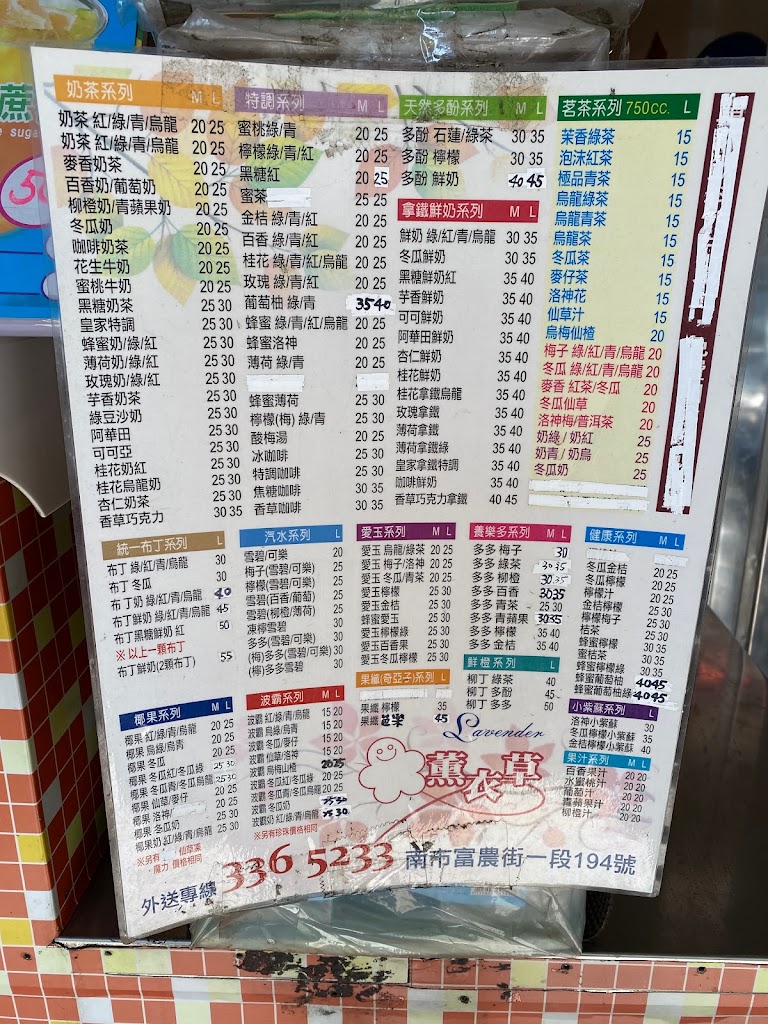 蔗
e suga
奶茶系列 M L
奶茶 紅/綠/青/烏龍 20 25
奶茶 紅/綠/青/烏龍 20 25
麥香奶茶 20 25
百香奶/葡萄奶 20 25
柳橙奶/青蘋果奶 20 25
冬瓜奶 20 25
咖啡奶茶 20 25
花生牛奶 20 25
蜜桃牛奶 20 25
黑糖奶茶 25 30
皇家特調 25 30
蜂蜜奶/綠/紅 25 30
薄荷奶/綠/紅 25 30
玫瑰奶/綠/紅 25 30
芋香奶茶 25 30
綠豆沙奶 25 30
阿華田 25 30
可可亞 25 30
桂花奶紅 25 30
桂花烏龍奶 25 30
杏仁奶茶 25 30
香草巧克力 30 35
特調系列 M L
蜜桃綠/青 20 25
檸檬綠/青/紅 20 25
黑糖紅 20 25
蜜茶 25 25
金桔 綠/青/紅 20 25
百香 綠/青/紅 20 25
桂花 綠/青/紅/烏龍 20 25
玫瑰 綠/青/紅 20 25
葡萄柚 綠/青 35 40
蜂蜜 綠/青/紅/烏龍 20 25
蜂蜜洛神 20 25
薄荷 綠/青 20 25
蜂蜜薄荷 25 30
檸檬(梅) 綠/青 25 30
酸梅湯 20 25
冰咖啡 25 30
特調咖啡 25 30
焦糖咖啡 30 35
香草咖啡 30 35
天然多酚系列 M L
多酚 石蓮/綠茶 30 35
多酚 檸檬 30 35
多酚 鮮奶 40 45
拿鐵鮮奶系列 M L
鮮奶 綠/紅/青/烏龍 30 35
冬瓜鮮奶 30 35
黑糖鮮奶紅 35 40
芋香鮮奶 35 40
可可鮮奶 35 40
阿華田鮮奶 35 40
杏仁鮮奶 35 40
桂花鮮奶 35 40
桂花拿鐵烏龍 35 40
玫瑰拿鐵 35 40
薄荷拿鐵 35 40
薄荷拿鐵綠 35 40
皇家拿鐵特調 35 40
咖啡鮮奶 35 40
香草巧克力拿鐵 40 45
茗茶系列 750CC. L
茉香綠茶 15
泡沫紅茶 15
極品青茶 15
烏龍綠茶 15
烏龍青茶 15
烏龍茶 15
冬瓜茶 15
麥仔茶 15
洛神花 15
仙草汁 15
烏梅仙楂 20
梅子 綠/紅/青/烏龍 20
冬瓜 綠/紅/青/烏龍 20
麥香 紅茶/冬瓜 20
冬瓜仙草 20
洛神梅/普洱茶 20
奶綠 / 奶紅 25
奶青 / 奶烏 25
冬瓜奶 25
統一布丁系列 L
布丁 綠/紅/青/烏龍 30
布丁 冬瓜 30
布丁奶 綠/紅/青/烏龍 40
布丁鮮奶 綠/紅/青/烏龍 45
布丁黑糖鮮奶 紅 50
※以上一顆布丁
布丁鮮奶(2顆布丁) 55
汽水系列 L
雪碧/可樂 20
梅子(雪碧/可樂) 25
檸檬(雪碧/可樂) 25
雪碧(百香/葡萄) 25
雪碧(柳橙/薄荷) 25
凍檸雪碧 30
多多(雪碧/可樂) 30
(梅)多多(雪碧/可樂) 30
(檸)多多雪碧 30
愛玉系列 M L
愛玉 烏龍/綠茶 20 25
愛玉 梅子/洛神 20 25
愛玉 冬瓜/青茶 20 25
愛玉檸檬 25 30
愛玉金桔 25 30
蜂蜜愛玉 25 30
愛玉檸檬綠 25 30
愛玉百香果 25 30
愛玉冬瓜檸檬 25 30
養樂多系列 M L
多多 梅子 30
多多 綠茶 30 35
多多 柳橙 30 35
多多 百香 30 35
多多 青茶 25 30
多多 青蘋果 30 35
多多 檸檬 35 40
多多 金桔 35 40
健康系列 M L
冬瓜金桔 20 25
冬瓜檸檬 20 25
檸檬汁 20 25
金桔檸檬 25 30
檸檬梅子 25 30
桔茶 25 30
蜂蜜檸檬 30 35
蜜桔茶 30 35
蜂蜜檸檬綠 30 35
蜂蜜葡萄柚 40 45
蜂蜜葡萄柚綠 40 45
果纖(奇亞子)系列 L
果纖 檸檬 35
果纖 45
鮮橙系列 L
柳丁 綠茶 40
柳丁 多酚 45
柳丁 多多 50
小紫蘇系列 L
洛神小紫蘇 30
冬瓜檸檬小紫蘇 35
金桔檸檬小紫蘇 40
果汁系列 M L
百香果汁 20 20
水蜜桃汁 20 20
葡萄汁 20 20
青蘋果汁 20 20
柳橙汁 20 20
椰果系列 M L
椰果 紅/綠/青/烏龍 20 25
椰果 烏綠/烏青 20 25
椰果 冬瓜 20 25
椰果 冬瓜紅/冬瓜綠 25 30
椰果 冬瓜青/冬瓜烏龍 25 30
椰果 仙草/麥仔 20 25
椰果 洛神/ 20 25
椰果 冬瓜奶 25 30
椰果奶 紅/綠/青/烏龍 25 30
※另有 仙草凍
魔力 價格相同
波霸系列 M L
波霸 紅/綠/青/烏龍 15 20
波霸 烏綠/烏青 15 20
波霸 冬瓜/麥仔 15 20
波霸 仙草/洛神 15 20
波霸 烏梅山楂 20 25
波霸 冬瓜紅/冬瓜綠 20 25
波霸 冬瓜青/冬瓜烏龍 20 25
波霸 冬瓜奶 25 30
波霸奶 紅/綠/青/烏龍 25 30
※另有珍珠價格相同
Lavender
薰衣草
外送專線 336 5233 南市富農街一段194號